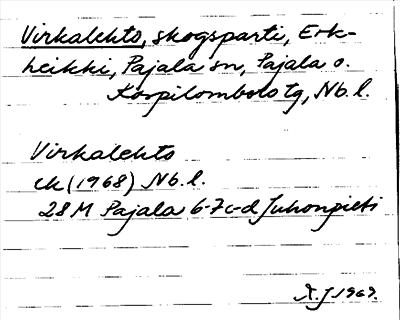 Virkalehto, skogsparti, Erk-
heikki, Pajala sn, Pajala o.
Korpilombolo tg, Nb. l.
Virkalehto
ek (1968) Nb. l.
28M Pajala 6-7c-d Juhonpieti
1969.